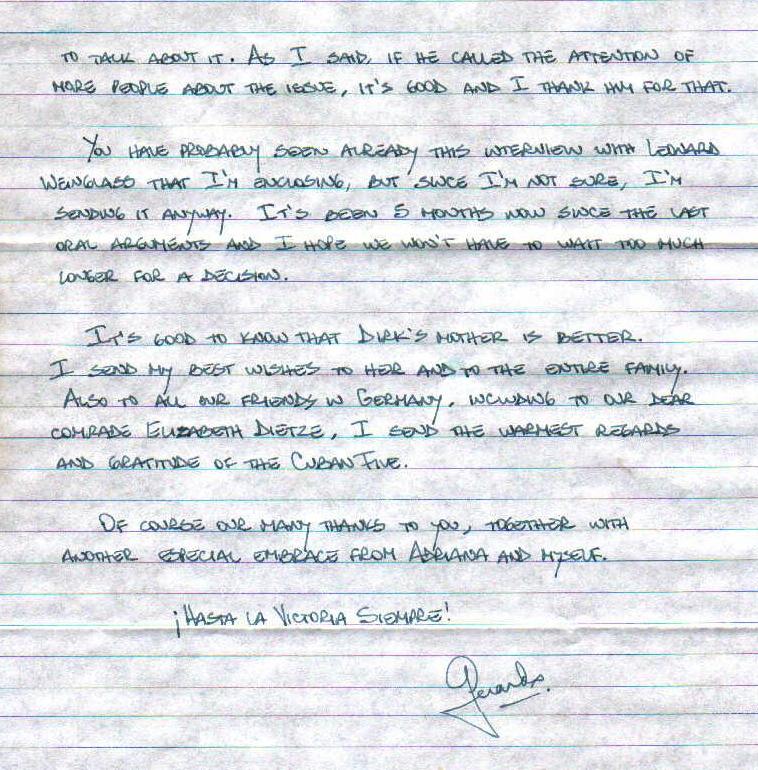 TO TALK ABOUT IT. AS I SAID, IF HE CALLED THE ATTENTION OF
MORE PEOPLE ABOUT THE ISSUE, IT'S GOOD AND I THANK HIM FOR THAT.
YOU HAVE PROBABLY SEEN ALREADY THIS INTERVIEW WITH LEONARD
WEINGLASS THAT I'M ENCLOSING, BUT SINCE I'M NOT SURE, I'M
SENDING IT ANYWAY. IT'S BEEN 5 MONTHS NOW SINCE THE LAST
ORAL ARGUMENTS AND I HOPE WE WON'T HAVE TO WAIT TOO MUCH
LONGER FOR A DECISION.
IT'S GOOD TO KNOW THAT DIRK'S MOTHER IS BETTER.
I SEND MY BEST WISHES TO HER AND TO THE ENTIRE FAMILY.
ALSO TO ALL OUR FRIENDS IN GERMANY, INCLUDING TO OUR DEAR
COMRADE ELIZABETH DIETZE, I SEND THE WARMEST REGARDS
AND GRATITUDE OF THE CUBAN FIVE.
OF COURSE OUR MANY THANKS TO YOU, TOGETHER WITH
ANOTHER ESPECIAL EMBRACE FROM ADRIANA AND MYSELF.
¡HASTA LA VICTORIA SIEMPRE!
Gerardo.